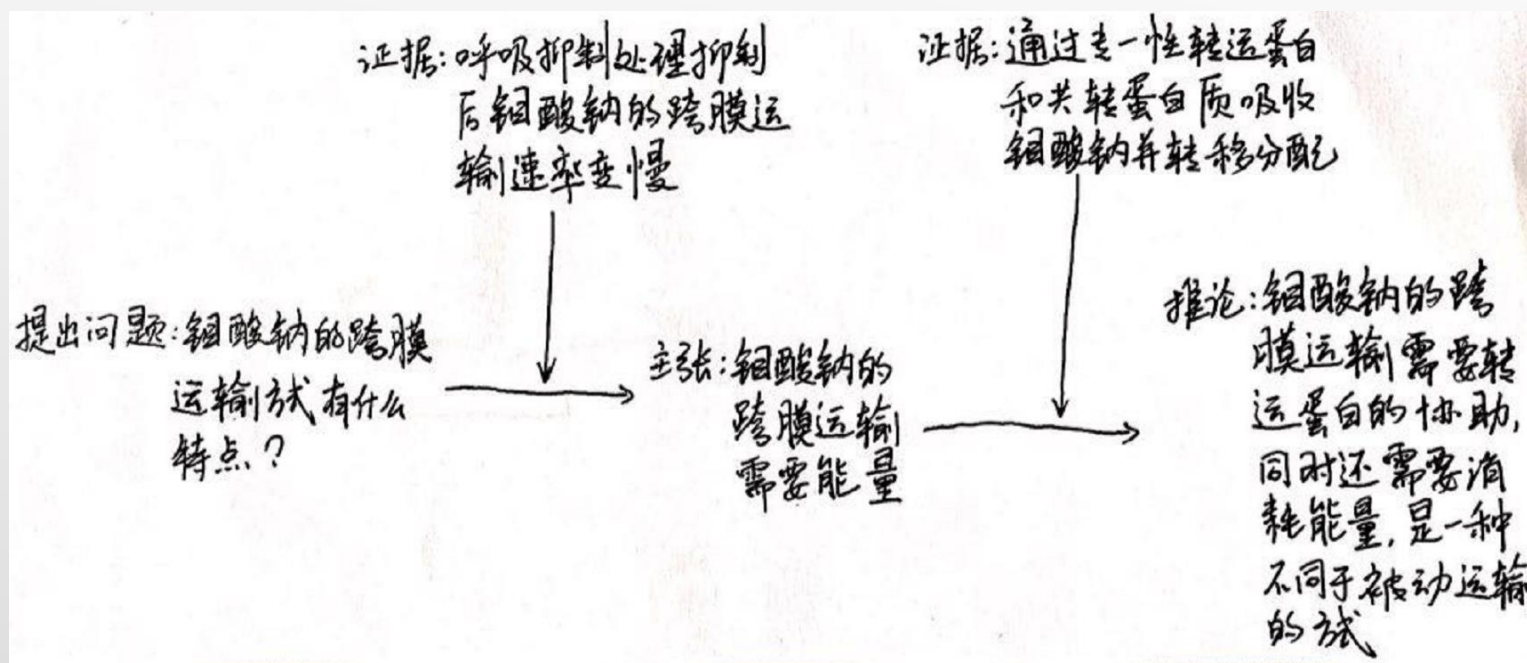 证据:呼吸抑制处理抑制
后钼酸钠的跨膜运
输速率变慢
证据:通过专一性转运蛋白
和共转蛋白质吸收
钼酸钠并转移分配
提出问题:钼酸钠的跨膜
运输方式有什么
特点?
主张:钼酸钠的
跨膜运输
需要能量
推论:钼酸钠的跨
膜运输需要转
运蛋白的协助,
同时还需要消
耗能量,是一种
不同于被动运输
的方式